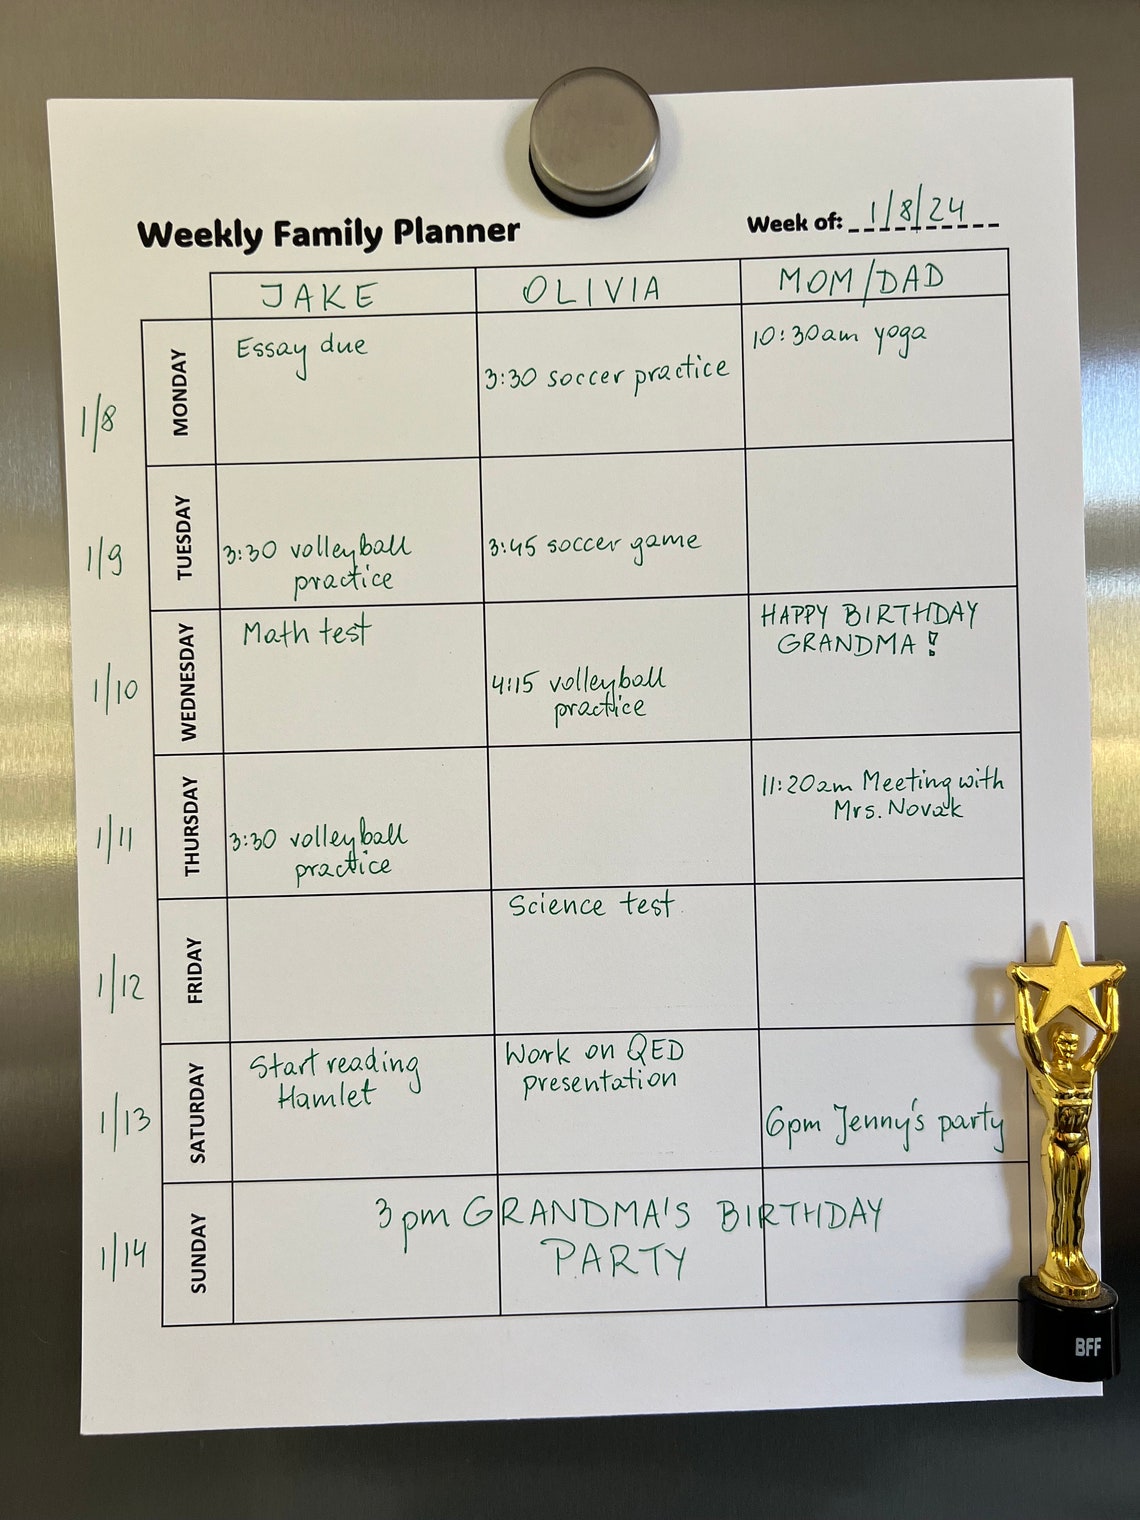 Weekly Family Planner
Week of: 1/8/24
JAKE
OLIVIA
MOM/DAD
1/8
MONDAY
Essay due
3:30 soccer practice
10:30am yoga
1/9
TUESDAY
3:30 volleyball
practice
3:45 soccer game
1/10
WEDNESDAY
Math test
4:15 volleyball
practice
HAPPY BIRTHDAY
GRANDMA!
1/11
THURSDAY
3:30 volleyball
practice
11:20am Meeting with
Mrs. Novak
1/12
FRIDAY
Science test
1/13
SATURDAY
Start reading
Hamlet
Work on QED
presentation
6pm Jenny's party
1/14
SUNDAY
3pm GRANDMA'S BIRTHDAY
PARTY
BFF